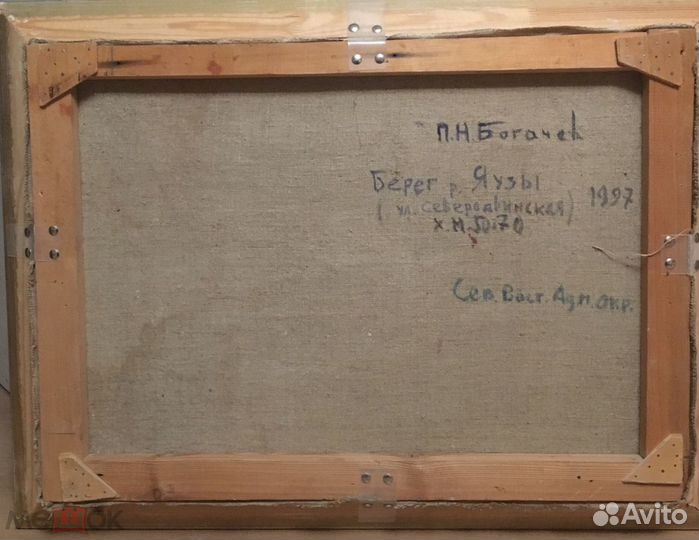 П.Н.Богачев
Берег р. Яузы
(ул. Северодвинская) 1997
х.м. 50х70
Сев. Вост. Адм. окр.
мешок
Avito